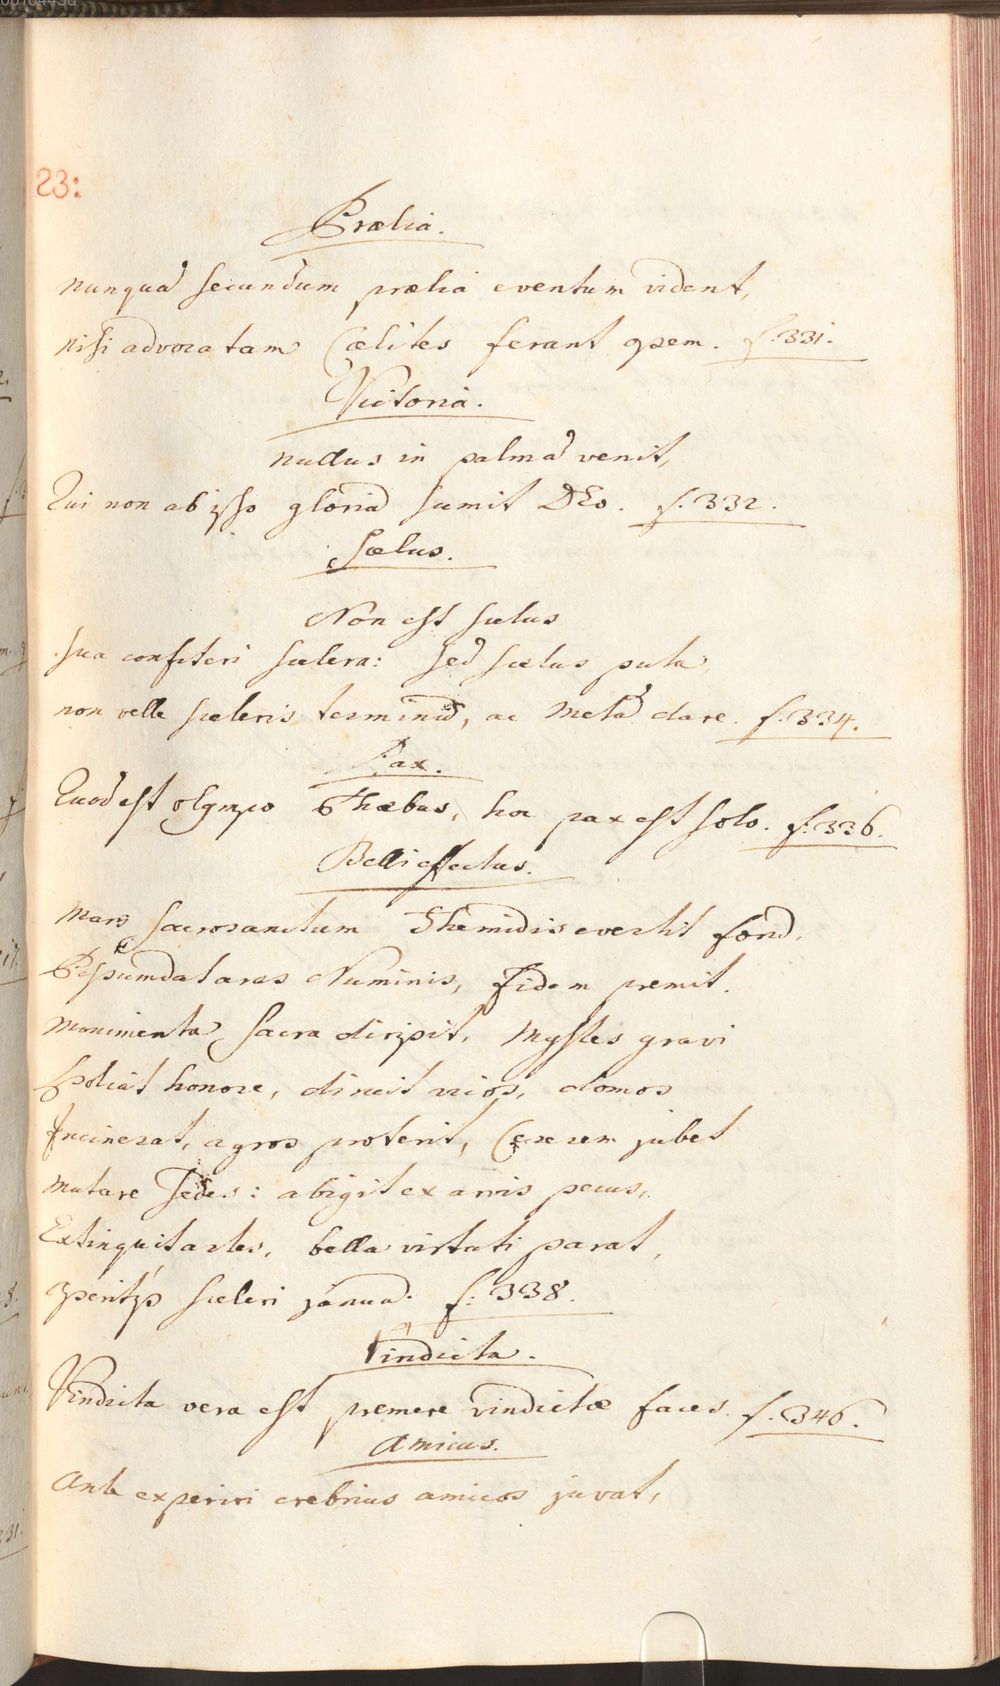 23:
Prælia.
nunquā secundum prælia eventum vident,
nisi advocatam Cælites ferant opem. f. 331.
Victoria.
nullus in palmā venit,
Qui non ab ipso gloriā sumit DEo. f. 332.
Scelus.
Non est scelus
sua confiteri scelera: sed scelus puta,
non velle sceleris terminū, ac metā dare. f. 334.
Pax.
Quod est olympo Phæbus, hoc pax est solo. f. 336.
Belli effectus.
Mars sacrosanctum Themidis evertit forū.
Pessumdat aras Numinis, Fidem premit.
Monimenta sacra diripit, Mystes gravi
spoliat honore, diruit vicos, domos
Incinerat, agros proterit, Cererem jubet
mutare sedes: abigit ex arvis pecus,
Extinguit artes, bella virtuti parat,
Aperitq; sceleri januā. f: 338.
Vindicta.
Vindicta vera est premere vindictæ faces. f. 346.
Amicus.
Ante experiri crebrius amicos juvat,